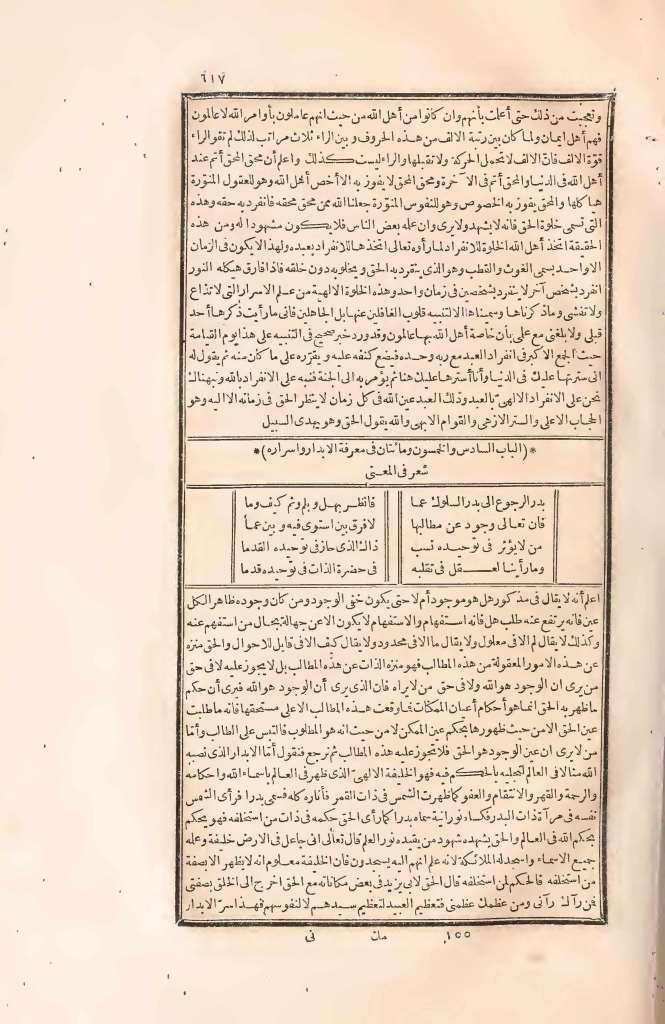 ٦١٧
وتعجبت من ذلك حتى أعلمت بأنهم وان كانوا من أهل الله من حيث انهم عاملون بأوامر الله لا عالمون
فهم أهل ايمان ولما كان بين رتبة الالف من هذه الحروف وبين الراء ثلاث مراتب لذلك لم تقو الراء
قوة الالف فان الالف لا تحمل الحركة ولا تقبلها والراء ليست كذلك واعلم أن محق المحق أتم عند
أهل الله فى الدنيا والمحق أتم فى الآخرة ومحق المحق لا يفوز به الا أخص أهل الله وهو للعقول المنورة
هياكلها والمحق يفوز به الخصوص وهو للنفوس المنورة جعلنا الله ممن محق محقه فانفرد به حقه وهذه
التى تسمى خلوة الحق فانه لا يشهد ولا يرى وان علمه بعض الناس فلا يكون مشهودا له ومن هذه
الحقيقة اتخذ أهل الله الخلوة للانفراد لما رأوه تعالى اتخذها للانفراد بعبده ولهذا لا يكون فى الزمان
الا واحد يسمى الغوث والقطب وهو الذى ينفرد به الحق ويخلو به دون خلقه فاذا فارق هيكله النور
انفرد بشخص آخر لا ينفرد بشخصين فى زمان واحد وهذه الخلوة الالهية من علم الاسرار التى لا تذاع
ولا تفشى وما ذكرناها وسميناها الا لتنبيه قلوب الغافلين عنها بل الجاهلين فانى ما رأيت ذكرها أحد
قبلى ولا بلغنى مع علمى بأن خاصة أهل الله بها عالمون وقد ورد خبر صحيح فى التنبيه على هذا يوم القيامة
حيث الجمع الاكبر فى انفراد العبد مع ربه وحده فيضع كنفه عليه ويقرره على ما كان منه ثم يقول له
انى سترتها عليك فى الدنيا وأنا أسترها عليك هنا ثم يؤمر به الى الجنة فنبه على الانفراد بالله ونبهناك
نحن على الانفراد الالهى بالعبد وذلك العبد عين الله فى كل زمان لا ينظر الحق فى زمانه الا اليه وهو
الحجاب الاعلى والستر الازهى والقوام الابهى والله يقول الحق وهو يهدى السبيل
* (الباب السادس والخمسون ومائتان فى معرفة الابدار وأسراره) *
شعر فى المعنى
بدر الرجوع الى بدر السلوك عما فانظر بهل وبلم وثم كيف وما
فان تعالى وجود عن مطالبها لا فرق بين استوى فيه وبين عما
من لا يؤثر فى توحيده نسب ذاك الذى حاز فى توحيده القدما
وما رأينا لعقل فى تقلبه فى حضرة الذات فى توحيده قدما
اعلم أنه لا يقال فى مذكور هل هو موجود أم لا حتى يكون خفى الوجود ومن كان وجوده ظاهر الكل
عين فانه يرتفع عنه طلب هل فانه استفهام والاستفهام لا يكون الا عن جهالة بحال من استفهم عنه
وكذلك لا يقال لم الا فى معلول ولا يقال ما الا فى محدود ولا يقال كيف الا فى قابل للاحوال والحق منزه
عن هذه الامور المعقولة من هذه المطالب فهو منزه الذات عن هذه المطالب بل لا يجوز عليه لا فى حق
من يرى ان الوجود هو الله ولا فى حق من لا يراه فان الذى يرى أن الوجود هو الله فيرى أن حكم
ما ظهر به الحق انما هو أحكام أعيان الممكنات فما وقعت هذه المطالب الا على مستحقها فانه ما طلبت
عين الحق الا من حيث ظهورها بحكم عين الممكن لا من حيث انه هو المطلوب فالتبس على الطالب وأما
من لا يرى ان عين الوجود هو الحق فلا يجوز عليه هذه المطالب ثم نرجع فنقول أما الابدار الذى نصبه
الله مثالا فى العالم لتجليه بالحكم فيه فهو الخليفة الالهى الذى ظهر فى العالم بأسماء الله وأحكامه
والرحمة والقهر والانتقام والعفو كما ظهرت الشمس فى ذات القمر فأناره كله فسمى بدرا فرأى الشمس
نفسه فى مرآة ذات البدر فكساه نورانية سماه بدرا كما رأى الحق حكمه فى ذات من استخلفه فهو يحكم
بحكم الله فى العالم والحق يشهده شهود من يفيده نور العلم قال تعالى انى جاعل فى الارض خليفة وعلمه
جميع الاسماء واسجد له الملائكة لانه علم انهم اليه يسجدون فان الخليفة معلوم انه لا يظهر الا بصفة
من استخلفه فالحكم لمن استخلفه قال الحق لابى يزيد فى بعض مكاناته مع الحق اخرج الى الخلق بصفتى
فمن رآك رآنى ومن عظمك عظمنى فتعظيم العبيد لتعظيم سيدهم لا لنفوسهم فهذا سر الابدار
١٥٥ مك نى